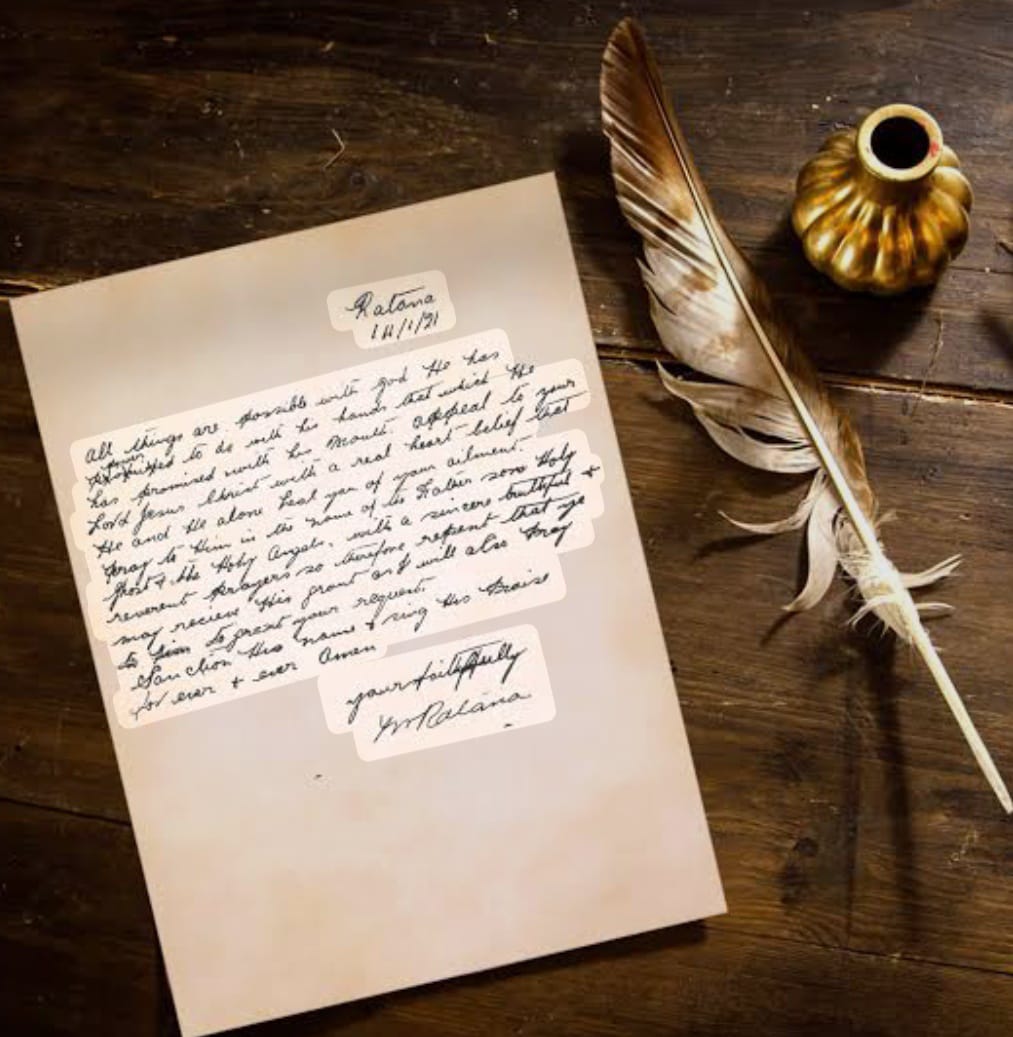 Ratana
14/1/21
All things are possible with god He has
power to do with his hands that which He
has promised with his mouth appeal to your
Lord Jesus Christ with a real heart belief that
He and He alone heal you of your ailment.
Pray to Him in the name of the Father son Holy
ghost & the Holy Angels, with a sincere truthful &
reverent prayers so therefore repent that ye
may recieve His grant as I will also Pray
to Him to grant your request.
Sanction His name & sing His Praise
for ever & ever Amen
your faithfully
Ratana